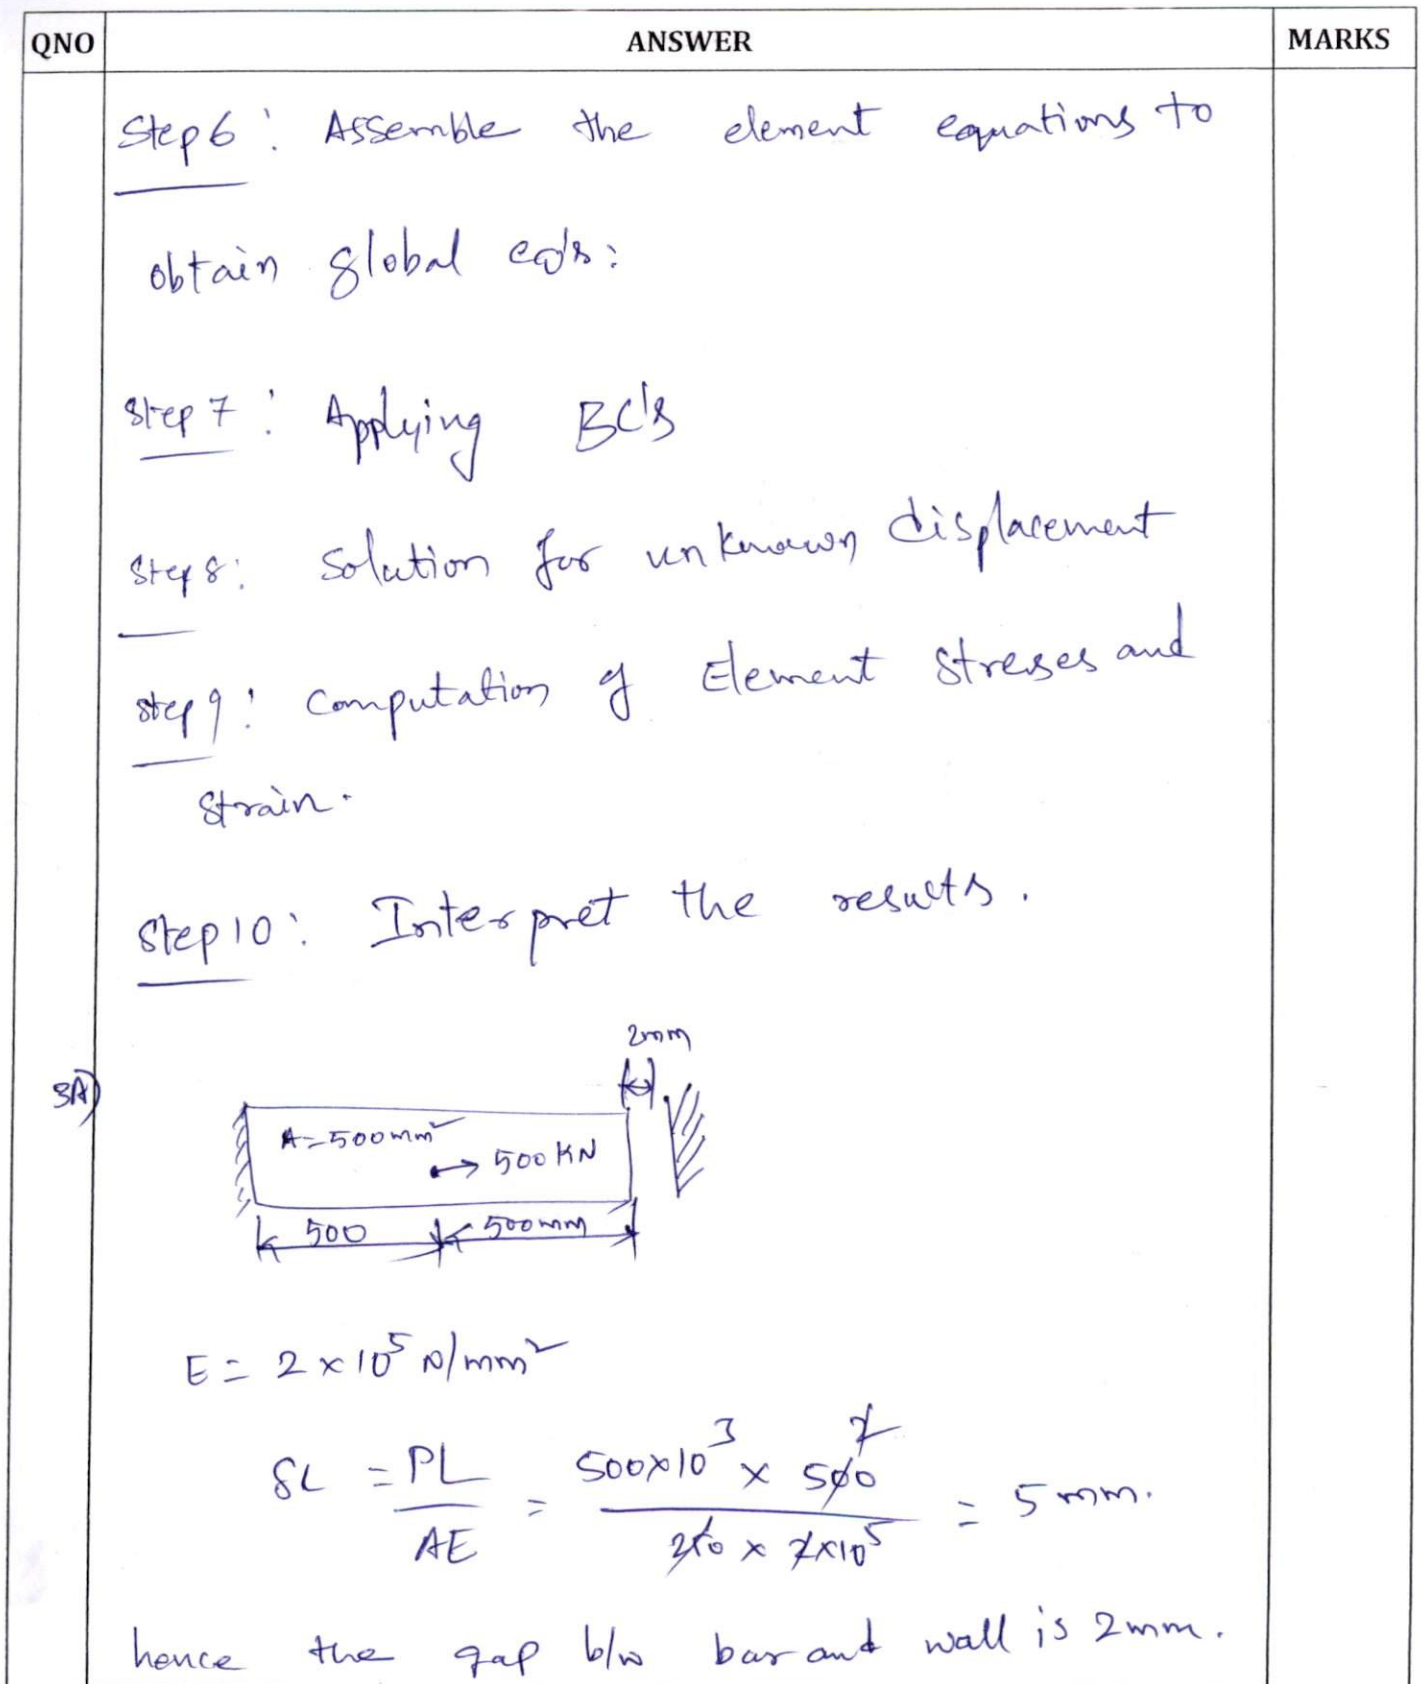 QNO ANSWER MARKS
Step 6 : Assemble the element equations to
obtain global eq's :
Step 7 : Applying BC's
Step 8 : Solution for unknown displacement
Step 9 : Computation of Element Stresses and
Strain.
Step 10 : Interpret the results.
3A)
2mm
A=500mm²
500 KN
500 500mm
E = 2 x 10⁵ N/mm²
δL = PL/AE = 500x10³ x 500 / 250 x 2x10⁵ = 5 mm.
hence the gap b/w bar and wall is 2mm.